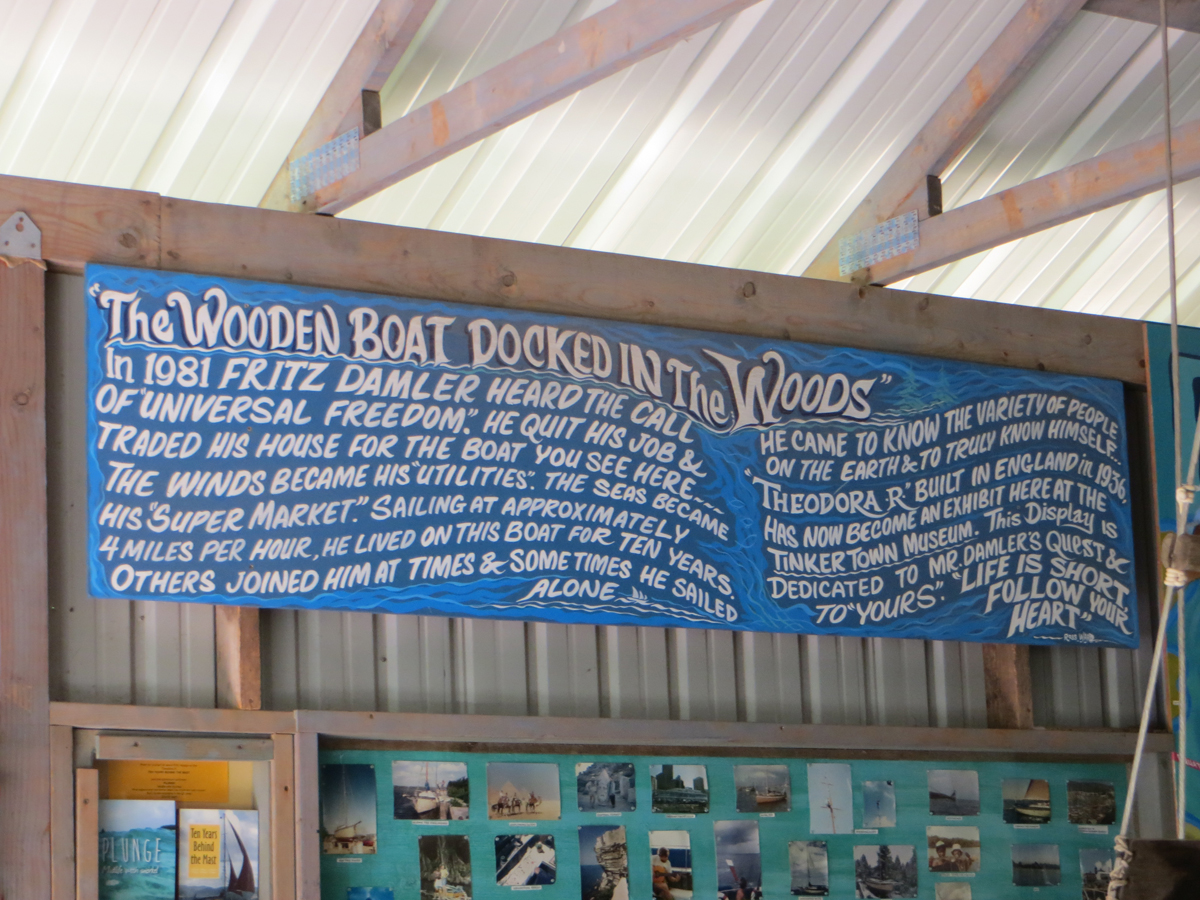 "The WOODEN BOAT DOCKED IN The WOODS"
In 1981 FRITZ DAMLER HEARD THE CALL
OF "UNIVERSAL FREEDOM". HE QUIT HIS JOB &
TRADED HIS HOUSE FOR THE BOAT YOU SEE HERE~~
THE WINDS BECAME HIS "UTILITIES". THE SEAS BECAME
HIS "SUPER MARKET." SAILING AT APPROXIMATELY
4 MILES PER HOUR, HE LIVED ON THIS BOAT FOR TEN YEARS.
OTHERS JOINED HIM AT TIMES & SOMETIMES HE SAILED
ALONE
HE CAME TO KNOW THE VARIETY OF PEOPLE
ON THE EARTH & TO TRULY KNOW HIMSELF..
"THEODORA R." BUILT IN ENGLAND in 1936
HAS NOW BECOME AN EXHIBIT HERE AT THE
TINKERTOWN MUSEUM. This Display is
DEDICATED TO MR. DAMLER'S QUEST &
TO "YOURS". "LIFE IS SHORT
FOLLOW YOUR
HEART"
PLUNGE
Ten Years
Behind
the Mast